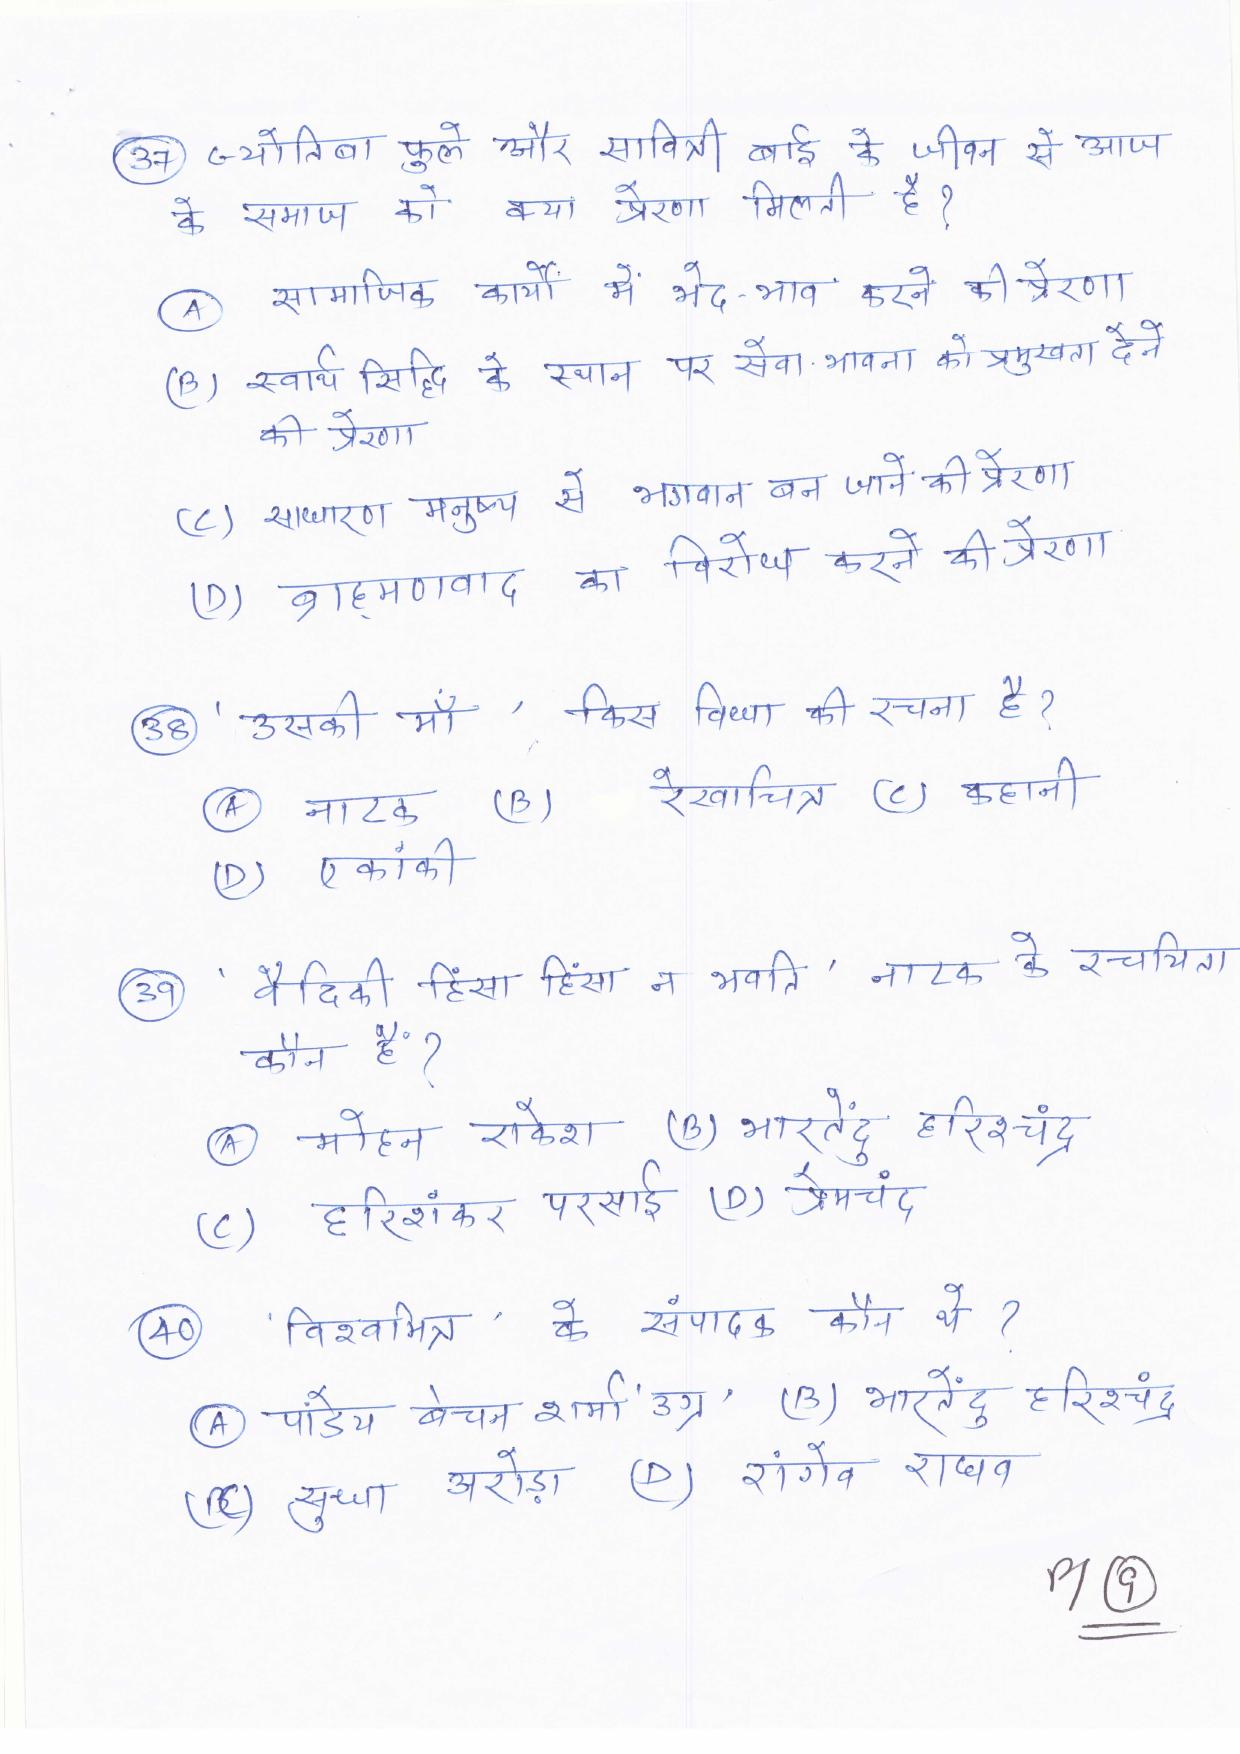 37 ज्योतिबा फुले और सावित्री बाई के जीवन से आज
के समाज को क्या प्रेरणा मिलती है?
A सामाजिक कार्यों में भेद-भाव करने की प्रेरणा
(B) स्वार्थ सिद्धि के स्थान पर सेवा-भावना को प्रमुखता देने
की प्रेरणा
(C) साधारण मनुष्य से भगवान बन जाने की प्रेरणा
(D) ब्राह्मणवाद का विरोध करने की प्रेरणा
38 'उसकी माँ', किस विधा की रचना है?
A नाटक (B) रेखाचित्र (C) कहानी
(D) एकांकी
39 'वैदिकी हिंसा हिंसा न भवति' नाटक के रचयिता
कौन हैं?
A मोहन राकेश (B) भारतेंदु हरिश्चंद्र
(C) हरिशंकर परसाई (D) प्रेमचंद
40 'विश्वामित्र' के संपादक कौन थे?
A पांडेय बेचन शर्मा 'उग्र' (B) भारतेंदु हरिश्चंद्र
(C) सुधा अरोड़ा (D) रांगेव राघव
P/ 9